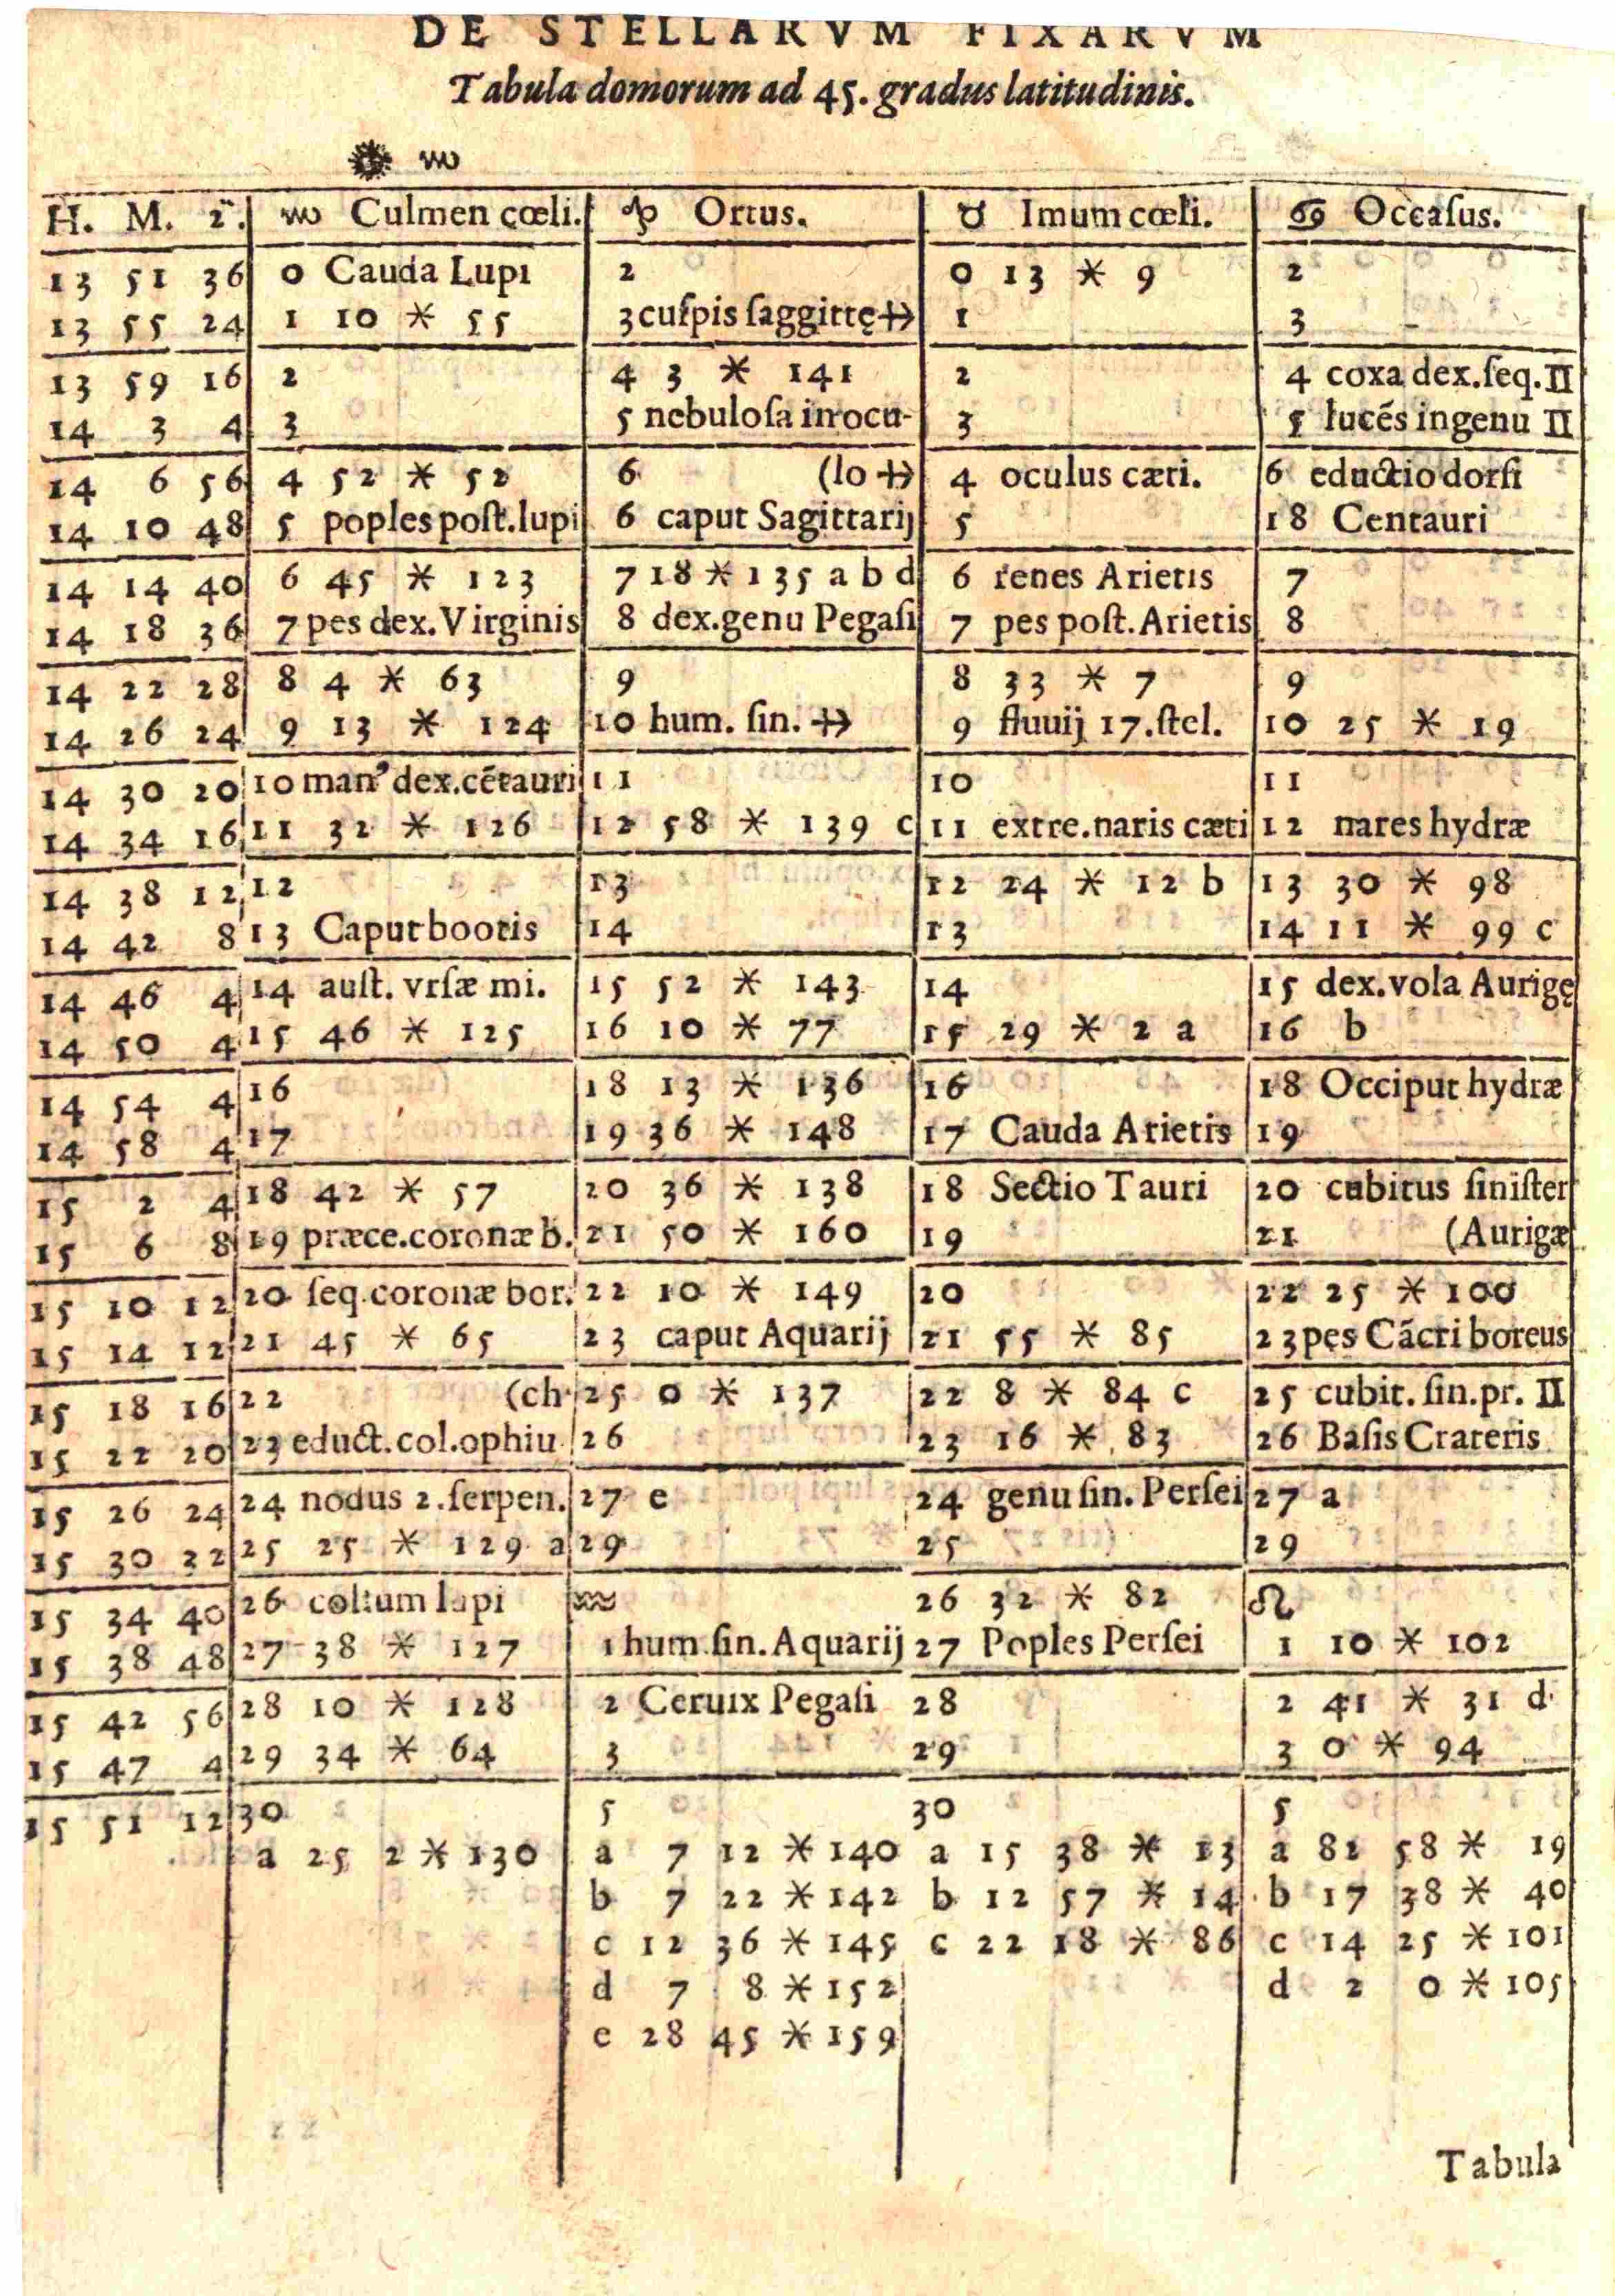 DE STELLARVM FIXARVM
Tabula domorum ad 45. gradus latitudinis.
☀ ♏
H. M. 2. ♏ Culmen cœli. ♑ Ortus. ♉ Imum cœli. ♋ Occaſus.
13 51 36 0 Cauda Lupi 2 0 13 * 9 2
13 55 24 1 10 * 55 3 cuſpis ſaggittę ♐ 1 3
13 59 16 2 4 3 * 141 2 4 coxa dex.ſeq. II
14 3 4 3 5 nebuloſa in ocu- 3 5 lucẽs in genu II
14 6 56 4 52 * 52 6 (lo ♐ 4 oculus cæti. 6 eductio dorſi
14 10 48 5 poples poſt.lupi 6 caput Sagittarij 5 18 Centauri
14 14 40 6 45 * 123 7 18 * 135 a b d 6 renes Arietis 7
14 18 36 7 pes dex.Virginis 8 dex.genu Pegaſi 7 pes poſt.Arietis 8
14 22 28 8 4 * 63 9 8 33 * 7 9
14 26 24 9 13 * 124 10 hum. ſin. ♐ 9 fluuij 17.ſtel. 10 25 * 19
14 30 20 10 man⁹ dex.cẽtauri 11 10 11
14 34 16 11 32 * 126 12 58 * 139 c 11 extre.naris cæti 12 nares hydræ
14 38 12 12 13 12 24 * 12 b 13 30 * 98
14 42 8 13 Caput bootis 14 13 14 11 * 99 c
14 46 4 14 auſt. vrſæ mi. 15 52 * 143 14 15 dex.vola Aurigę
14 50 4 15 46 * 125 16 10 * 77 15 29 * 2 a 16 b
14 54 4 16 18 13 * 136 16 18 Occiput hydræ
14 58 4 17 19 36 * 148 17 Cauda Arietis 19
15 2 4 18 42 * 57 20 36 * 138 18 Sectio Tauri 20 cubitus ſiniſter
15 6 8 19 præce.coronæ b. 21 50 * 160 19 21 (Aurigæ
15 10 12 20 ſeq.coronæ bor. 22 10 * 149 20 22 25 * 100
15 14 12 21 45 * 65 23 caput Aquarij 21 55 * 85 23 pes Cãcri boreus
15 18 16 22 (ch 25 0 * 137 22 8 * 84 c 25 cubit. ſin.pr. II
15 22 20 23 educt.col.ophiu 26 23 16 * 83 26 Baſis Crateris
15 26 24 24 nodus 2.ſerpen. 27 e 24 genu ſin. Perſei 27 a
15 30 32 25 25 * 129 a 29 25 29
15 34 40 26 collum lupi ♒ 26 32 * 82 ♌
15 38 48 27 38 * 127 1 hum.ſin.Aquarij 27 Poples Perſei 1 10 * 102
15 42 56 28 10 * 128 2 Ceruix Pegaſi 28 2 41 * 31 d
15 47 4 29 34 * 64 3 29 3 0 * 94
15 51 12 30 5 30 5
a 25 2 * 130 a 7 12 * 140 a 15 38 * 13 a 82 58 * 19
b 7 22 * 142 b 12 57 * 14 b 17 38 * 40
c 12 36 * 145 c 22 18 * 86 c 14 25 * 101
d 7 8 * 152 d 2 0 * 105
e 28 45 * 159
Tabula